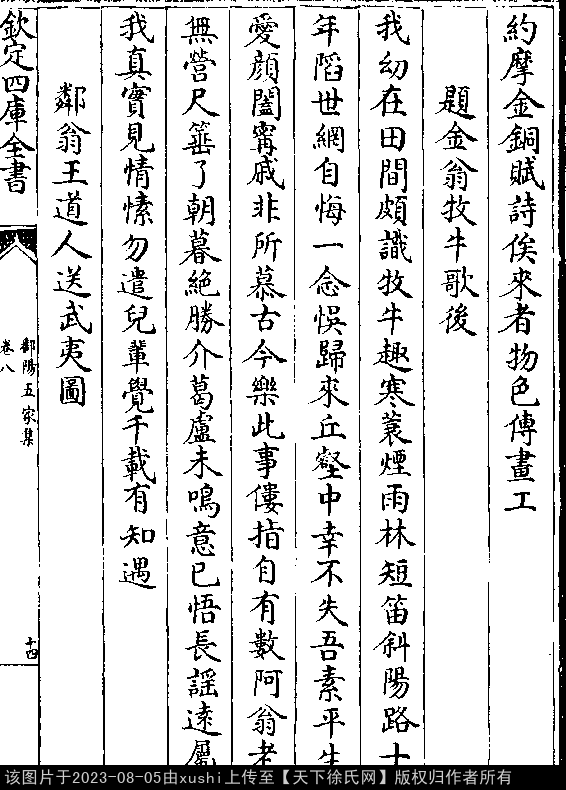 約摩金銅賦詩俟來者物色傳畫工
題金翁牧牛歌後
我幼在田間頗識牧牛趣寒蓑煙雨林短笛斜陽路十
年䧟世網自悔一念悞歸來丘壑中幸不失吾素平生
愛顔闔甯戚非所慕古今樂此事僂指自有數阿翁老
無營尺箠了朝暮絶勝介葛盧未鳴意已悟長謡遠屬
我真實見情愫勿遣兒輩覺千載有知遇
鄰翁王道人送武夷圖
欽定四庫全書
鄱陽五家集
卷八
十四
该图片于2023-08-05由xushi上传至【天下徐氏网】版权归作者所有